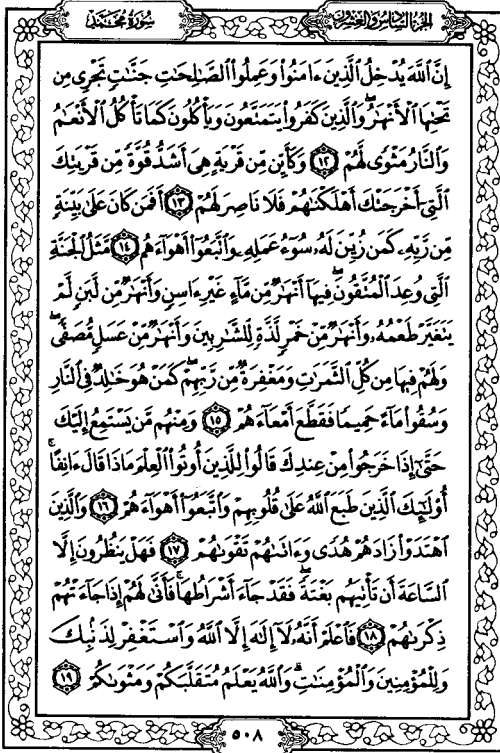 سورة محمد
الجزء السادس والعشرون
إِنَّ ٱللَّهَ يُدْخِلُ ٱلَّذِينَ ءَامَنُوا۟ وَعَمِلُوا۟ ٱلصَّـٰلِحَـٰتِ جَنَّـٰتٍ تَجْرِى مِن
تَحْتِهَا ٱلْأَنْهَـٰرُ ۖ وَٱلَّذِينَ كَفَرُوا۟ يَتَمَتَّعُونَ وَيَأْكُلُونَ كَمَا تَأْكُلُ ٱلْأَنْعَـٰمُ
وَٱلنَّارُ مَثْوًى لَّهُمْ ١٢ وَكَأَيِّن مِّن قَرْيَةٍ هِىَ أَشَدُّ قُوَّةً مِّن قَرْيَتِكَ
ٱلَّتِىٓ أَخْرَجَتْكَ أَهْلَكْنَـٰهُمْ فَلَا نَاصِرَ لَهُمْ ١٣ أَفَمَن كَانَ عَلَىٰ بَيِّنَةٍ
مِّن رَّبِّهِۦ كَمَن زُيِّنَ لَهُۥ سُوٓءُ عَمَلِهِۦ وَٱتَّبَعُوٓا۟ أَهْوَآءَهُم ١٤ مَّثَلُ ٱلْجَنَّةِ
ٱلَّتِى وُعِدَ ٱلْمُتَّقُونَ ۖ فِيهَآ أَنْهَـٰرٌ مِّن مَّآءٍ غَيْرِ ءَاسِنٍ وَأَنْهَـٰرٌ مِّن لَّبَنٍ لَّمْ
يَتَغَيَّرْ طَعْمُهُۥ وَأَنْهَـٰرٌ مِّنْ خَمْرٍ لَّذَّةٍ لِّلشَّـٰرِبِينَ وَأَنْهَـٰرٌ مِّنْ عَسَلٍ مُّصَفًّى ۖ
وَلَهُمْ فِيهَا مِن كُلِّ ٱلثَّمَرَٰتِ وَمَغْفِرَةٌ مِّن رَّبِّهِمْ ۖ كَمَنْ هُوَ خَـٰلِدٌ فِى ٱلنَّارِ
وَسُقُوا۟ مَآءً حَمِيمًا فَقَطَّعَ أَمْعَآءَهُمْ ١٥ وَمِنْهُم مَّن يَسْتَمِعُ إِلَيْكَ
حَتَّىٰٓ إِذَا خَرَجُوا۟ مِنْ عِندِكَ قَالُوا۟ لِلَّذِينَ أُوتُوا۟ ٱلْعِلْمَ مَاذَا قَالَ ءَانِفًا ۚ
أُو۟لَـٰٓئِكَ ٱلَّذِينَ طَبَعَ ٱللَّهُ عَلَىٰ قُلُوبِهِمْ وَٱتَّبَعُوٓا۟ أَهْوَآءَهُمْ ١٦ وَٱلَّذِينَ
ٱهْتَدَوْا۟ زَادَهُمْ هُدًى وَءَاتَىٰهُمْ تَقْوَىٰهُمْ ١٧ فَهَلْ يَنظُرُونَ إِلَّا
ٱلسَّاعَةَ أَن تَأْتِيَهُم بَغْتَةً ۖ فَقَدْ جَآءَ أَشْرَاطُهَا ۚ فَأَنَّىٰ لَهُمْ إِذَا جَآءَتْهُمْ
ذِكْرَىٰهُمْ ١٨ فَٱعْلَمْ أَنَّهُۥ لَآ إِلَـٰهَ إِلَّا ٱللَّهُ وَٱسْتَغْفِرْ لِذَنۢبِكَ
وَلِلْمُؤْمِنِينَ وَٱلْمُؤْمِنَـٰتِ ۗ وَٱللَّهُ يَعْلَمُ مُتَقَلَّبَكُمْ وَمَثْوَىٰكُمْ ١٩
٥٠٨